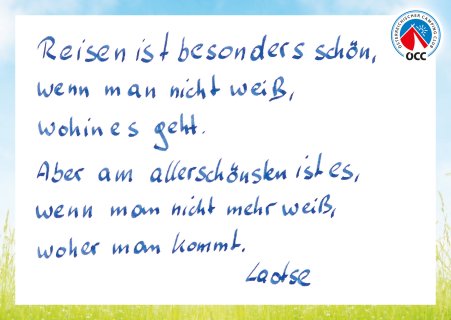 Reisen ist besonders schön,
wenn man nicht weiß,
wohin es geht.
Aber am allerschönsten ist es,
wenn man nicht mehr weiß,
woher man kommt.
Laotse
ÖSTERREICHISCHER CAMPING CLUB
ÖCC